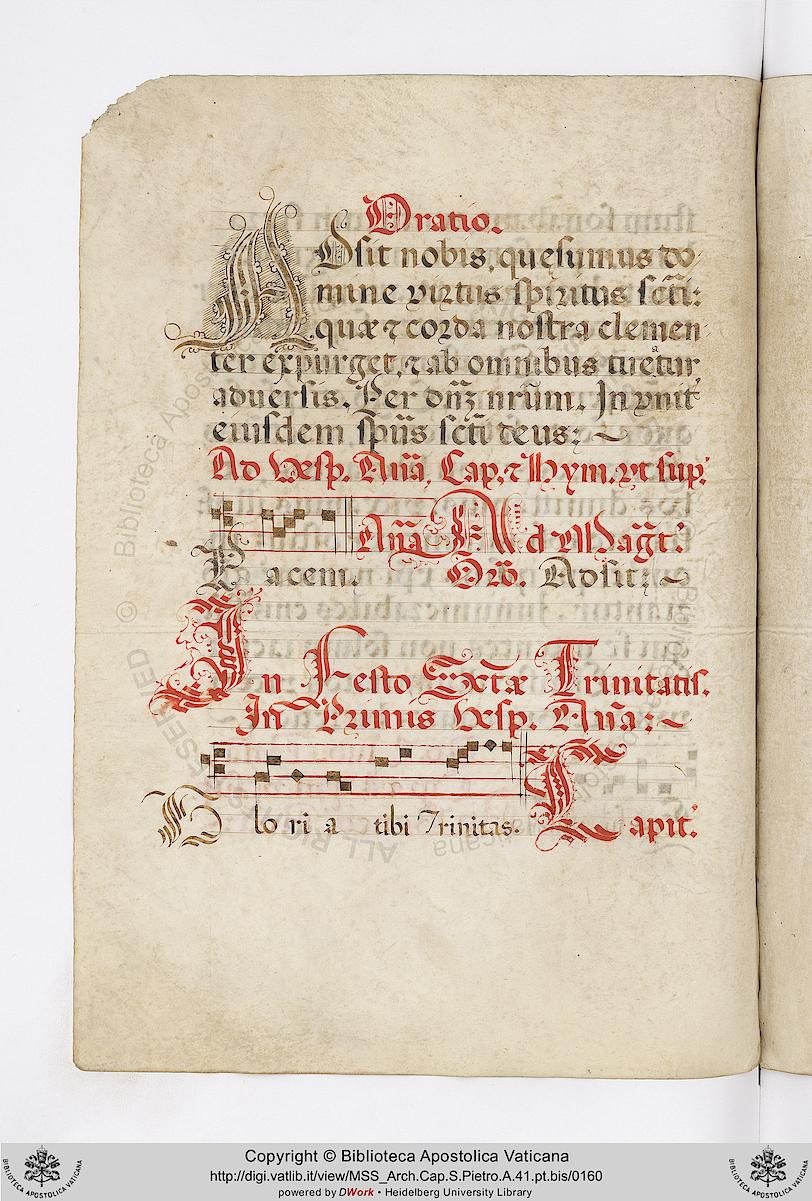 Oratio.
ADsit nobis, quęsumus do-
mine virtus spiritus sc̃ti:
quæ & corda nostra clemen-
ter expurget, & ab omnibus tueatur
adversis. Per dñz nr̃um. In vnit
eiusdem sp̃us sc̃ti deus:~
Ad Vesp. Añа, Cap. & Hym. vt sup.
Añа Ad Mag̃t:
Pacem, Or̃o. Adsit:~
In Festo Sctæ Trinitatis.
In Primis Vesp. Añа:~
Glo ri a tibi Trinitas. Capit.
© Biblioteca Apostolica Vaticana
ALL RIGHTS RESERVED
Copyright © Biblioteca Apostolica Vaticana
http://digi.vatlib.it/view/MSS_Arch.Cap.S.Pietro.A.41.pt.bis/0160
powered by DWork • Heidelberg University Library